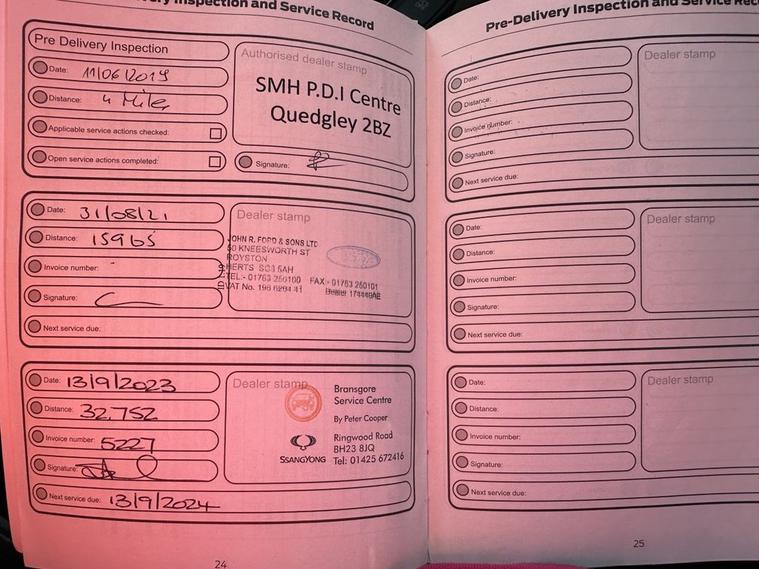 Inspection and Service Record
Pre Delivery Inspection
Date: 11/06/2019
Distance: 4 Miles
Applicable service actions checked:
Open service actions completed:
Authorised dealer stamp
SMH P.D.I Centre
Quedgley 2BZ
Signature:
Date: 31/08/21
Distance: 15965
Invoice number:
Signature:
Next service due:
Dealer stamp
JOHN R. FORD & SONS LTD
50 KNEESWORTH ST
ROYSTON
HERTS SG8 5AH
TEL:- 01763 260100 FAX - 01763 260101
VAT No.
Date: 13/9/2023
Distance: 32,752
Invoice number: 5227
Signature:
Next service due: 13/9/2024
Dealer stamp
Bransgore
Service Centre
By Peter Cooper
SSANGYONG
Ringwood Road
BH23 8JQ
Tel: 01425 672416
24
Pre-Delivery Inspection and Service Rec
Date:
Distance:
Invoice number:
Signature:
Next service due:
Dealer stamp
Date:
Distance:
Invoice number:
Signature:
Next service due:
Dealer stamp
Date:
Distance:
Invoice number:
Signature:
Next service due:
Dealer stamp
25